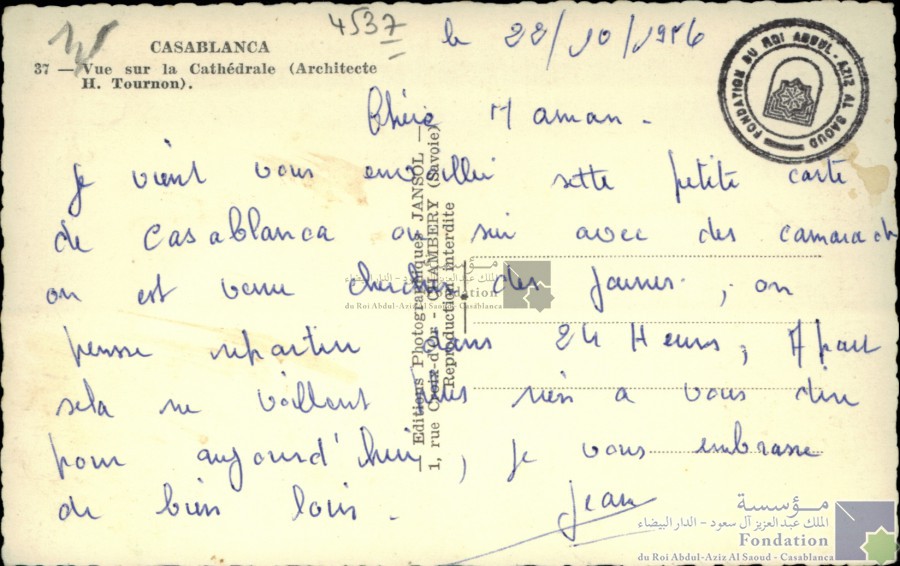 4537
CASABLANCA
37 — Vue sur la Cathédrale (Architecte
H. Tournon).
le 22/10/1956
FONDATION DU ROI ABDUL-AZIZ AL SAOUD
Chère Maman.
je vient vous envoiller sette petite carte
de Casablanca ou sui avec des camarade
on est venue chercher des jaunes, on
pensse repartire dans 24 Heures, Apart
sela ne voillent plus rien a vous dire
pour aujourd'hui, je vous embrasse
de bien loin.
Jean
Editions Photographiques JANSOL —
1, rue Croix-d'Or - CHAMBERY (Savoie)
Reproduction interdite
مؤسسة
الملك عبد العزيز آل سعود - الدار البيضاء
Fondation
du Roi Abdul-Aziz Al Saoud - Casablanca
مؤسسة
الملك عبد العزيز آل سعود - الدار البيضاء
Fondation
du Roi Abdul-Aziz Al Saoud - Casablanca